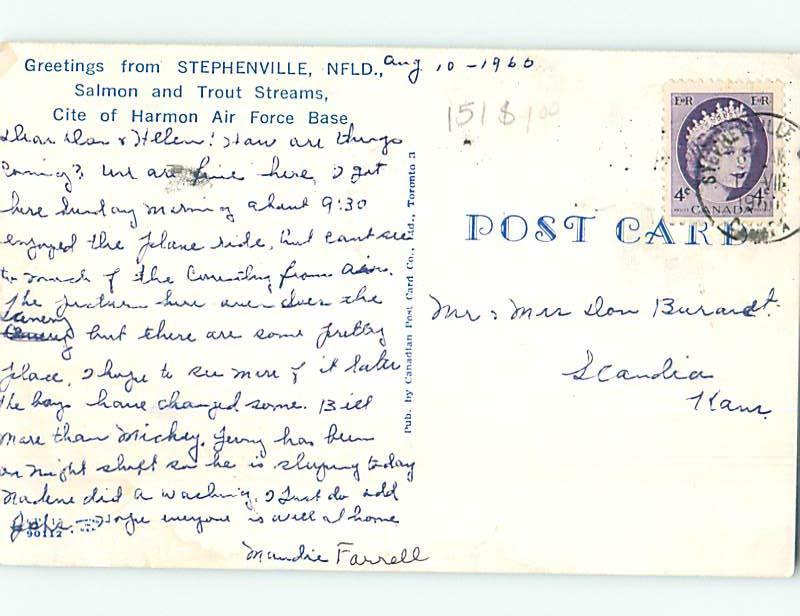 Greetings from STEPHENVILLE, NFLD.,
Salmon and Trout Streams,
Cite of Harmon Air Force Base
Aug 10-1960
151 $1.00
Dear Don & Helen! How are things
Coming? We are fine here, I got
here Sunday morning about 9:30
enjoyed the plane ride, but cant see
to much of the Country from air.
The picture here over does the
but there are some pretty
place, I hope to see more of it later
The boys have changed some. Bill
more than Mickey. Jerry has been
on night shift so he is sleeping today
Nadene did a washing, I Just do odd
Jobs - Hope everyone is well at home
Maudie Farrell
90112
Pub. by Canadian Post Card Co., Ltd., Toronto 3
E R E R
4¢ 4¢
CANADA
STEPHENVILLE
POST CARD
Mr & Mrs Don Burandt
Scandia
Kans.